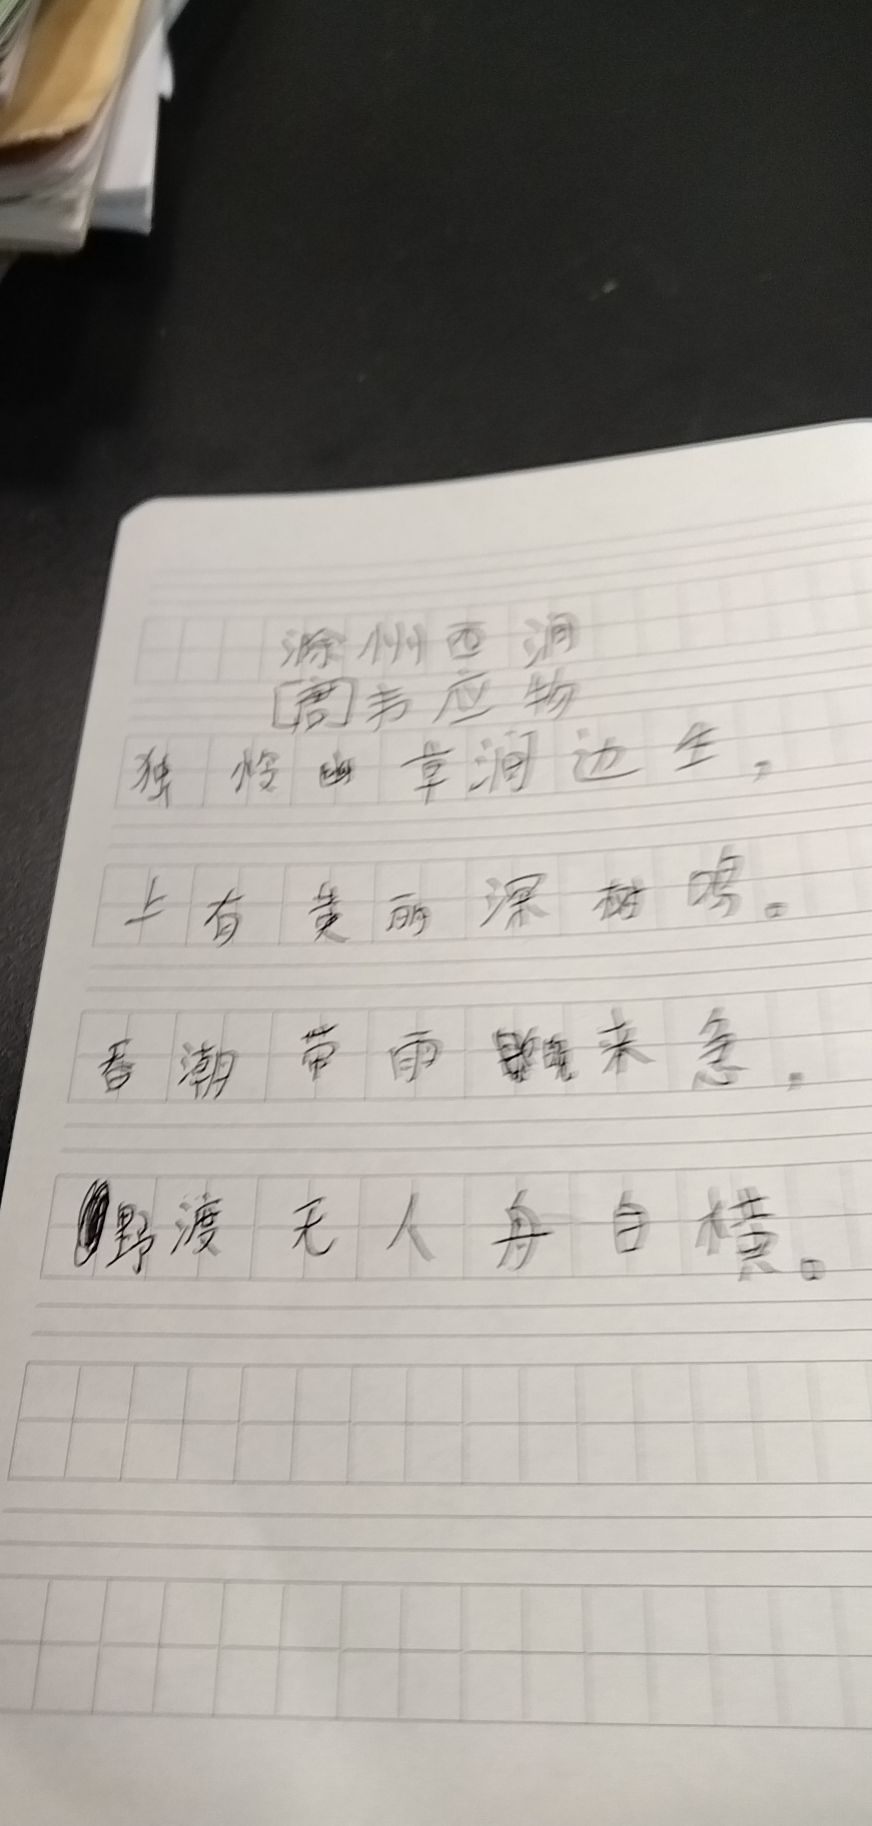 滁州西涧
[唐]韦应物
独怜幽草涧边生,
上有黄丽深树鸣。
春潮带雨晚来急,
野渡无人舟自横。